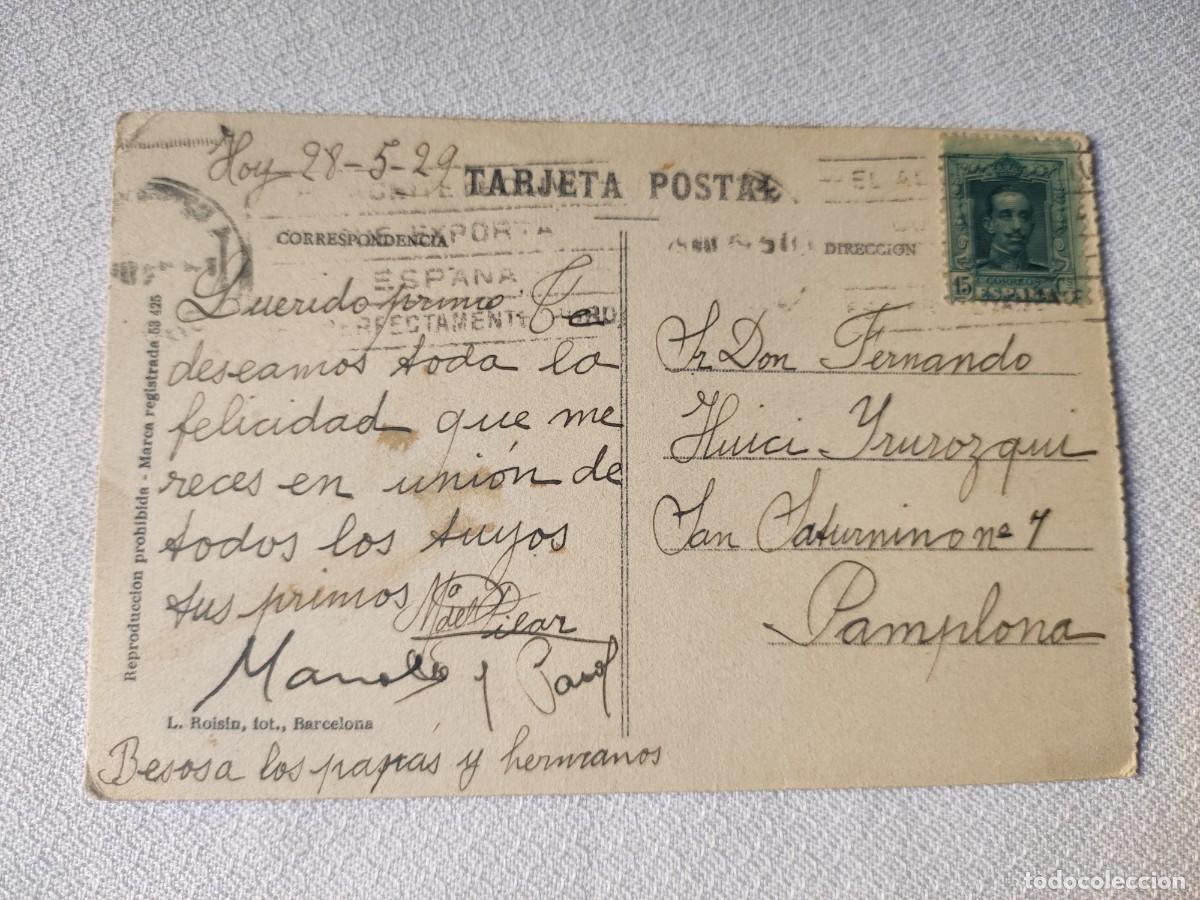 Hoy 28-5-29
TARJETA POSTAL
CORRESPONDENCIA
DIRECCION
QUE EXPORTA
ESPAÑA
PERFECTAMENTE
15
CORREOS
ESPAÑA
Querido primo Te
deseamos toda la
felicidad que me
reces en unión de
todos los tuyos
tus primos Mª del Pilar
Manolo y
Besos a los papás y hermanos
Sr Don Fernando
Huici Yrurozqui
San Saturnino nº 7
Pamplona
Reproduccion prohibida - Marca registrada 53 425
L. Roisin, fot., Barcelona
todocoleccion